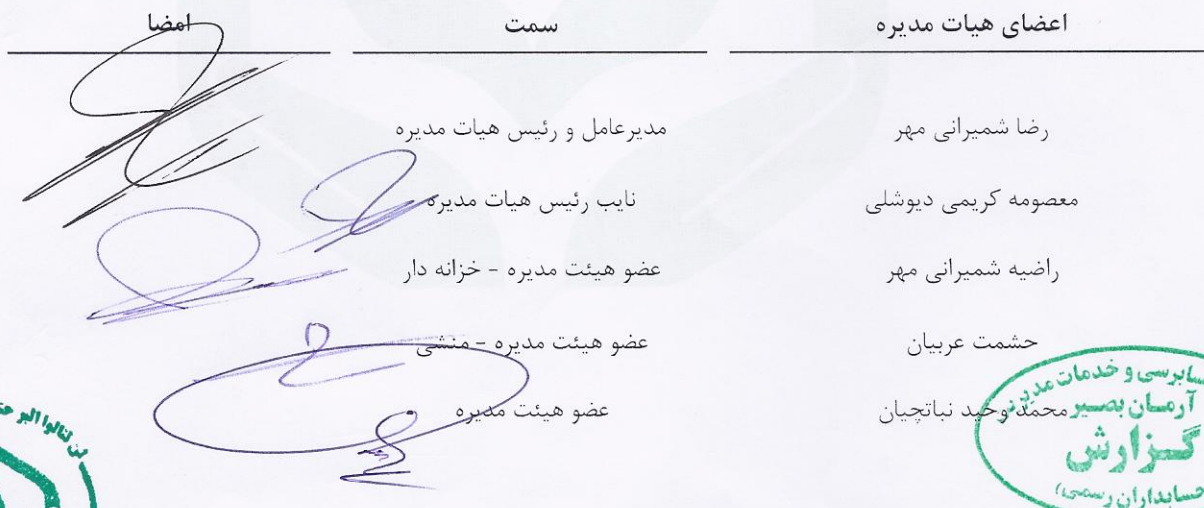 اعضای هیات مدیره سمت امضا
رضا شمیرانی مهر مدیرعامل و رئیس هیات مدیره
معصومه کریمی دیوشلی نایب رئیس هیات مدیره
راضیه شمیرانی مهر عضو هیئت مدیره - خزانه دار
حشمت عربیان عضو هیئت مدیره - منشی
محمد وحید نباتچیان عضو هیئت مدیره
و خدمات
آرمان بصیر
گزارش
حسابداران رسمی)
لن تنالوا البر